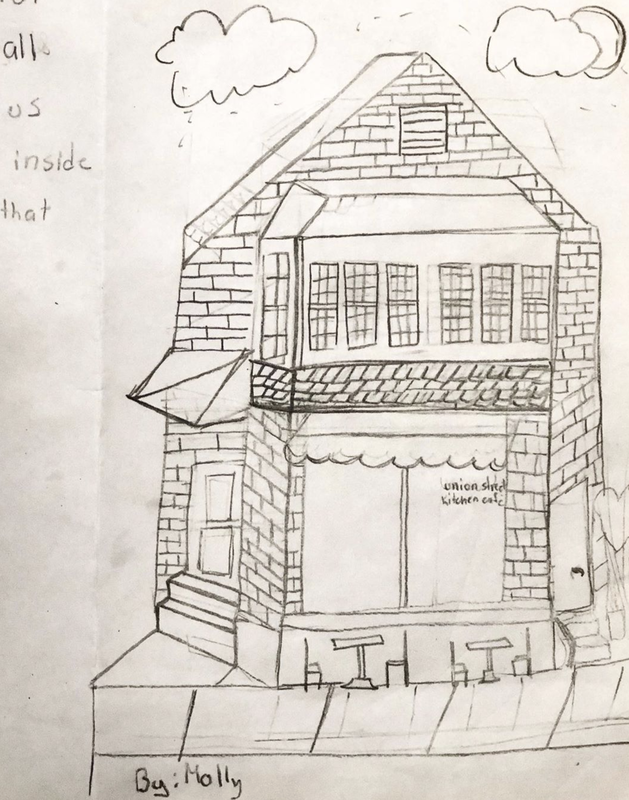 all
us
inside
that
union street
kitchen cafe
By: Molly